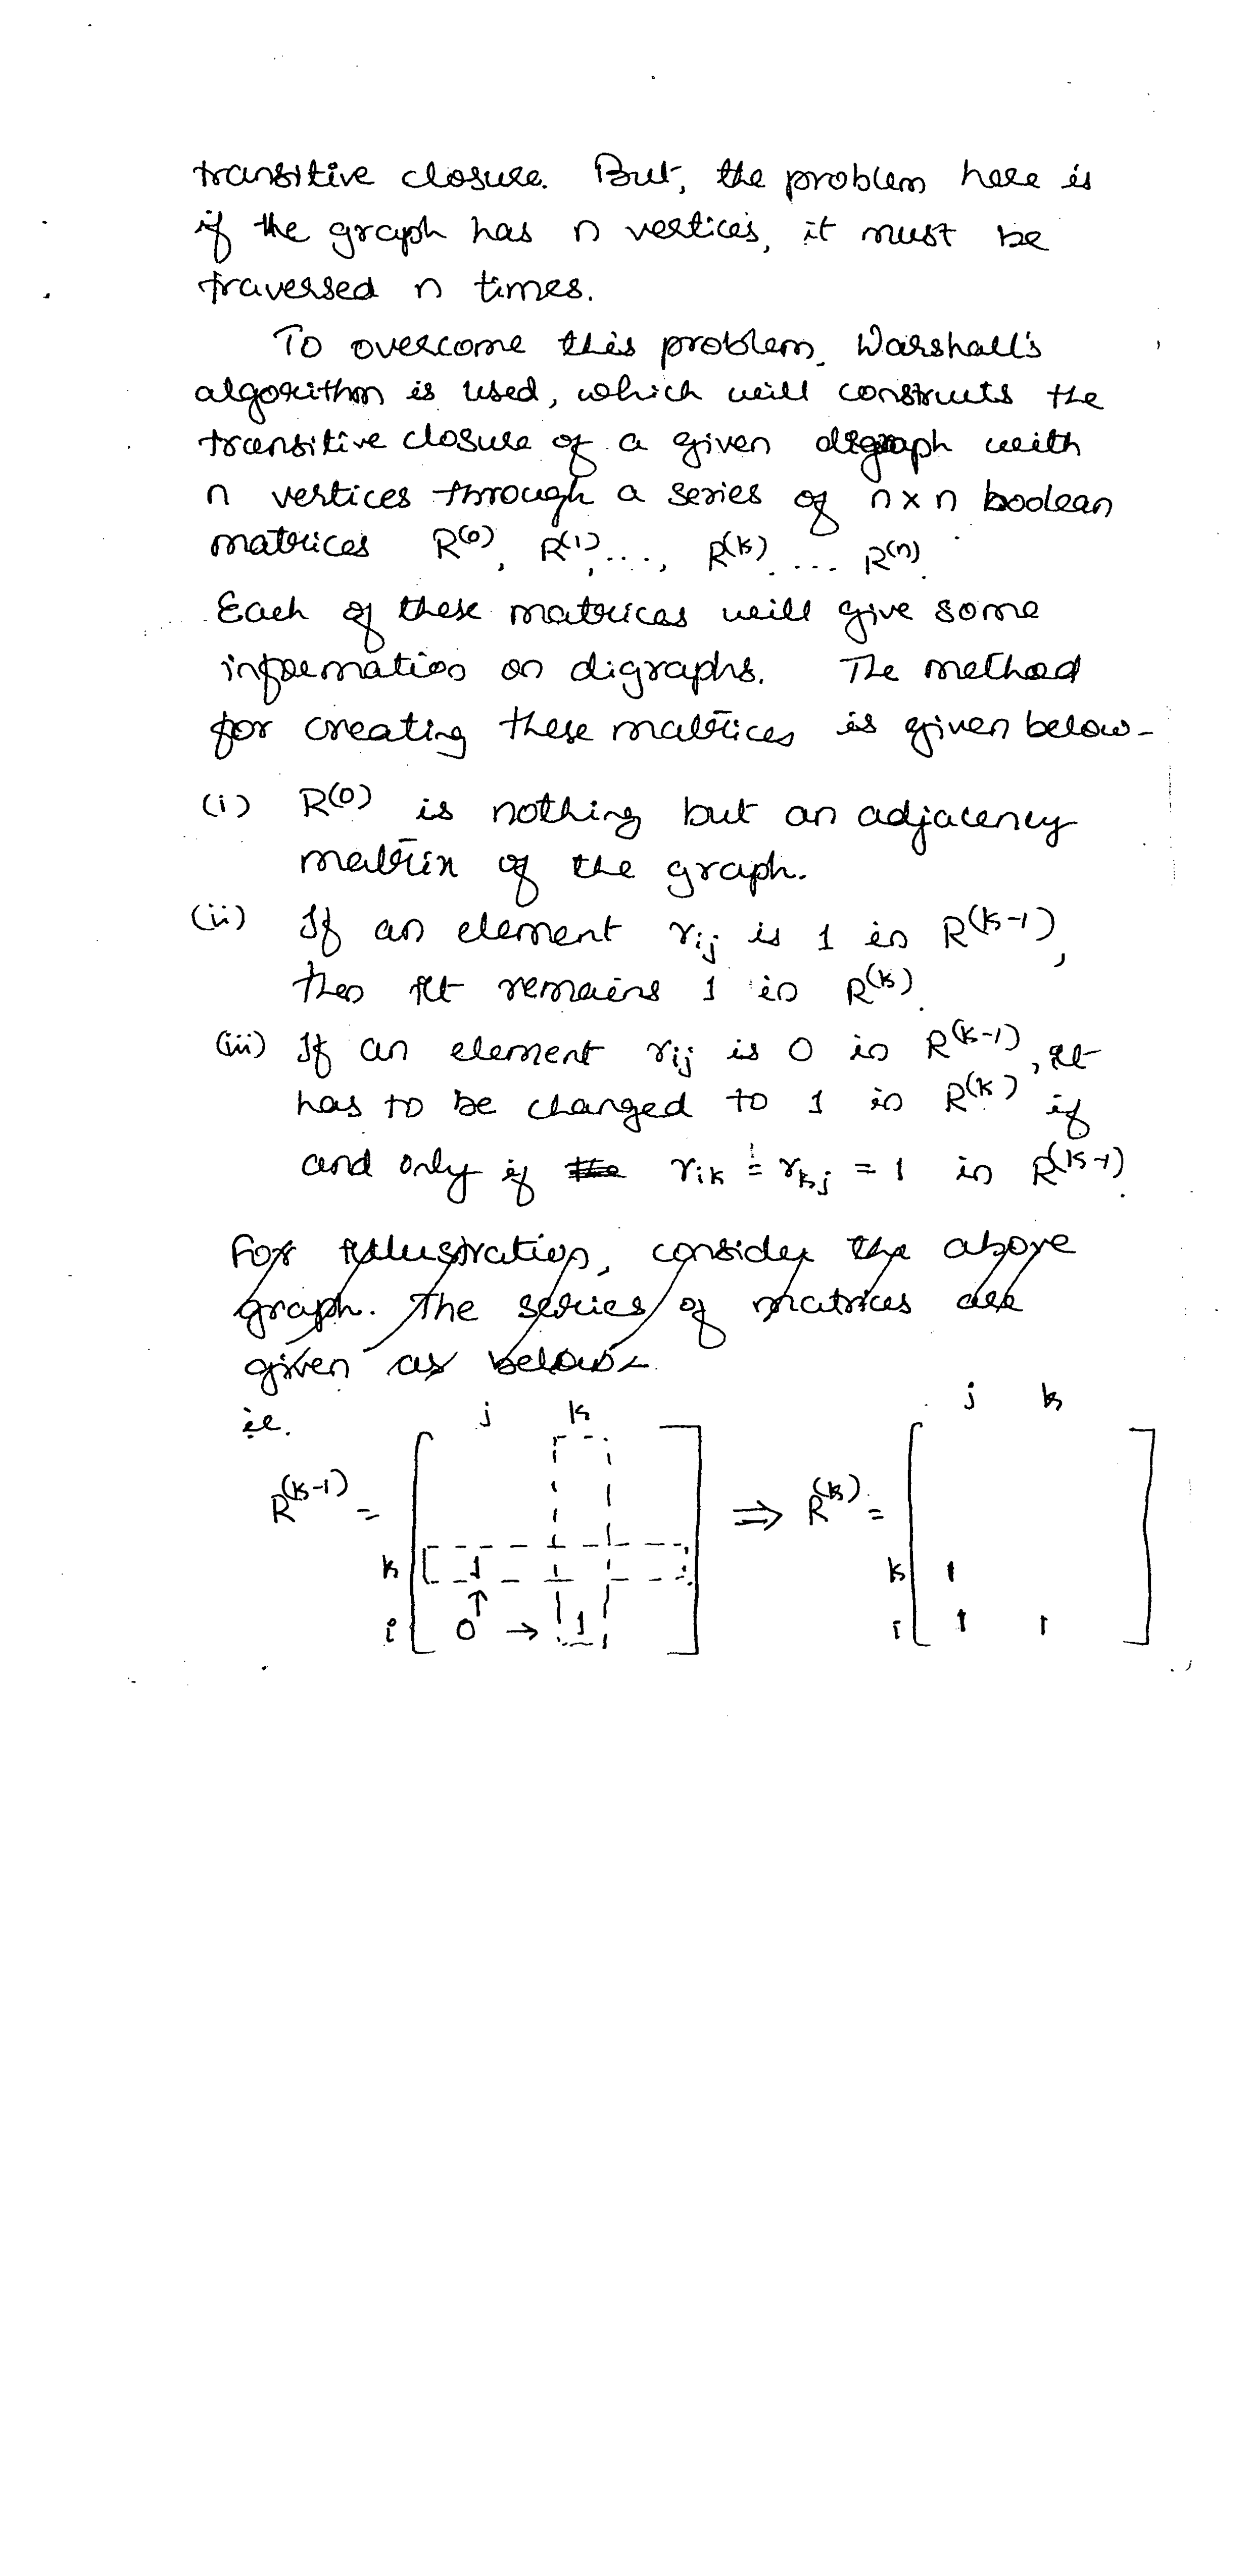 transitive closure. But, the problem here is
if the graph has n vertices, it must be
traversed n times.
To overcome this problem, Warshall's
algorithm is used, which will constructs the
transitive closure of a given digraph with
n vertices through a series of n x n boolean
matrices R(0), R(1), ..., R(k), ... R(n).
Each of these matrices will give some
information on digraphs. The method
for creating these matrices is given below-
(i) R(0) is nothing but an adjacency
matrix of the graph.
(ii) If an element rij is 1 in R(k-1),
then it remains 1 in R(k).
(iii) If an element rij is 0 in R(k-1), it
has to be changed to 1 in R(k) if
and only if rik = rkj = 1 in R(k-1).
For illustration, consider the above
graph. The series of matrices are
given as below-
ie. j k j k
R(k-1) = ⇒ R(k) =
k 1 k 1
↑
i 0 → 1 i 1 1